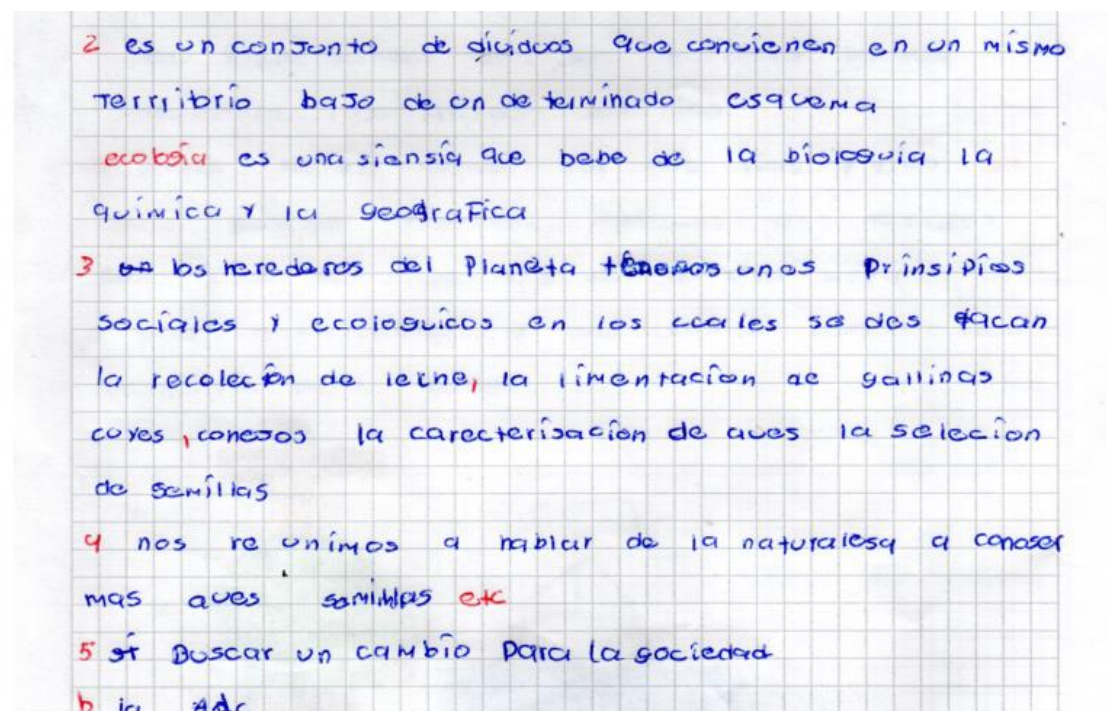 2 es un conJunto de diciduos que convienen en un mismo
Terriibrio baJo de un de terminado esquema
ecoloia es una siensia que bebe de la biologuia la
quimica y la geograFica
3 los herederos del Planeta tenemos unos Prinsipios
sociales y ecologuicos en los ccales se des tacan
la recoleción de leche, la limentacion de gallinas
cuyes, conejos la carecterisacion de aves la selecion
de semillas
4 nos re unimos a hablar de la naturalesa a conoser
mas aves semillas etc
5 Buscar un cambio Para la sociedad